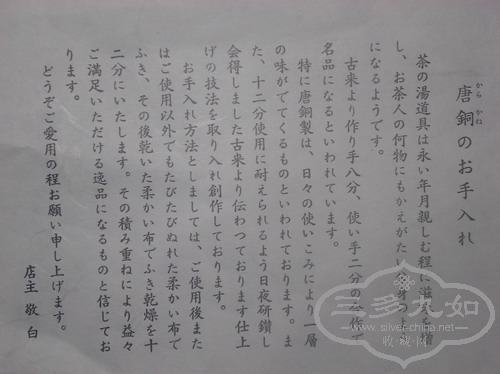 からかね
唐銅のお手入れ
茶の湯道具は永い年月親しむ程に滋味を増
し、お茶人の何物にもかえがたい分身
になるようです。
古来より作り手八分、使い手二分の合作で
名品になるといわれています。
特に唐銅製は、日々の使いこみにより一層
の味がでてくるものといわれております。ま
た、十二分使用に耐えられるよう日夜研鑽し
会得しました古来より伝わっております仕上
げの技法を取り入れ創作しております。
お手入れ方法としましては、ご使用後また
はご使用以外でもたびたびぬれた柔かい布で
ふき、その後乾いた柔かい布でふき乾燥を十
二分にいたします。その積み重ねにより益々
ご満足いただける逸品になるものと信じてお
ります。
どうぞご愛用の程お願い申し上げます。
店主 敬白
三多九如
www.silver-china.net
收藏网